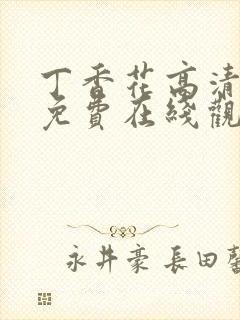 丁香花高清
免費在綫觀
永井豪 長田馨